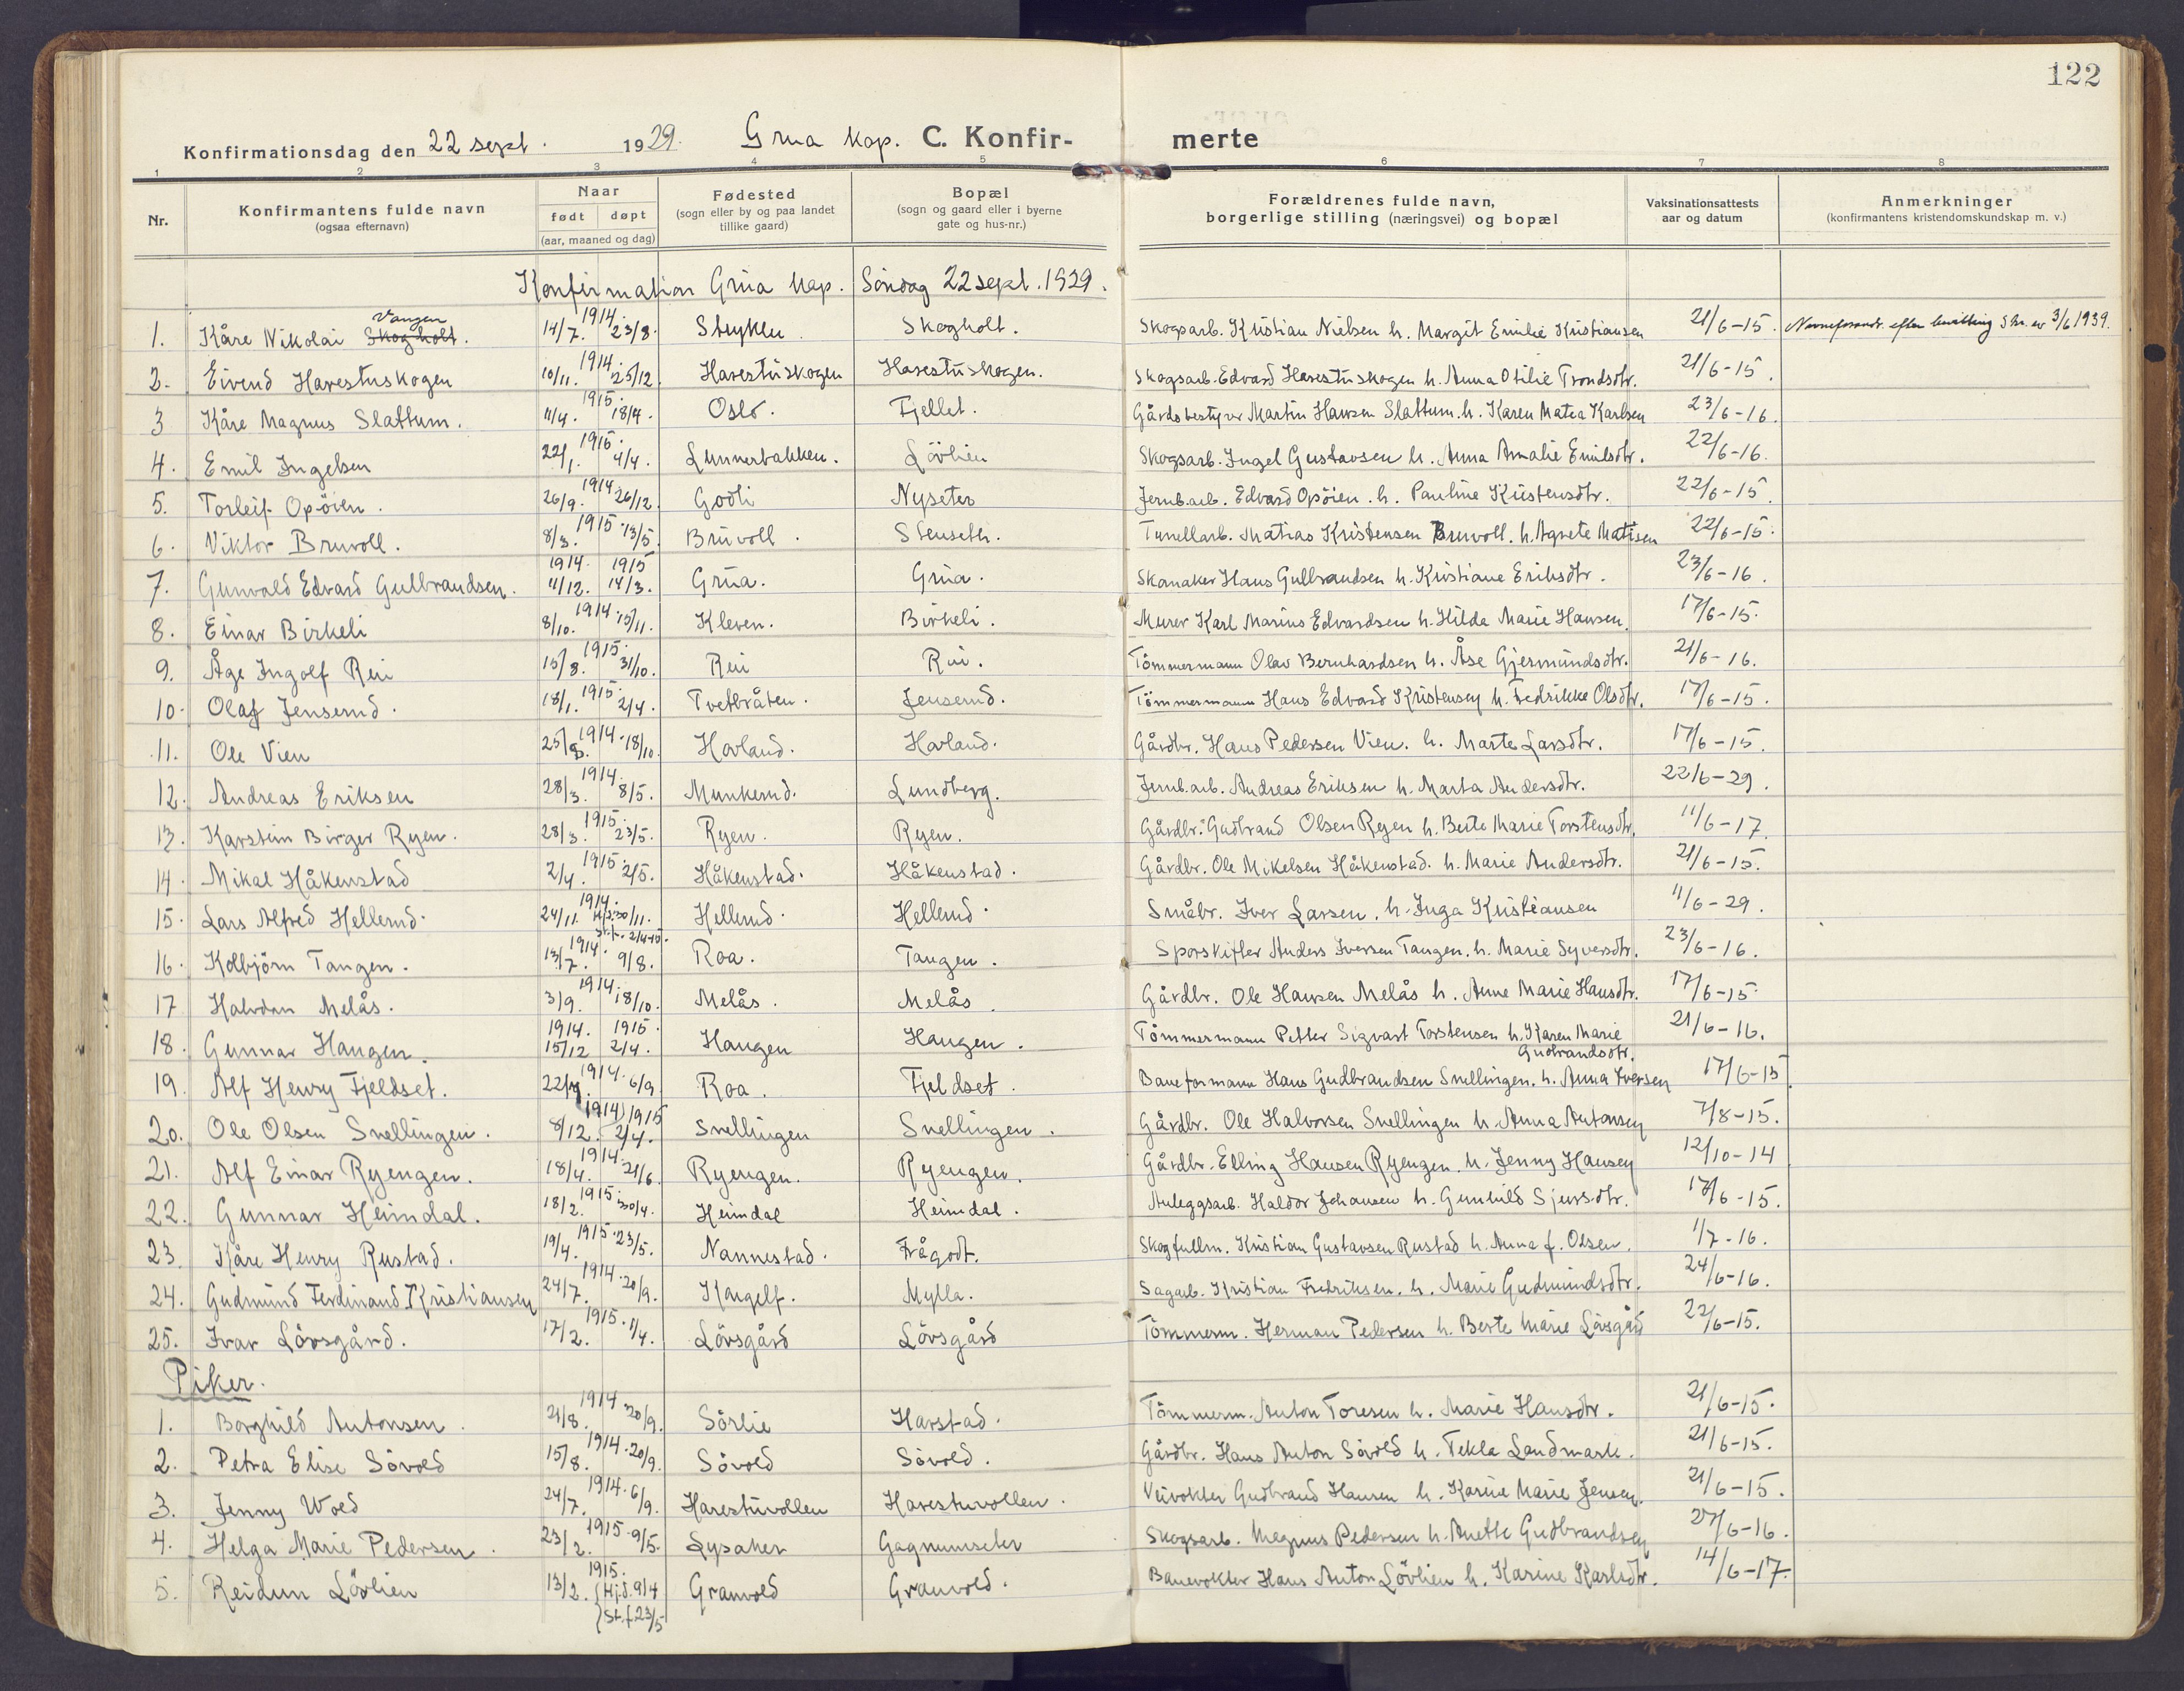 122
Konfirmationsdag den 22 sept. 1929. Grua kap. C. Konfirmerte
1 2 3 4 5 6 7 8
Nr. Konfirmantens fulde navn (ogsaa efternavn) Naar født døpt (aar, maaned og dag) Fødested (sogn eller by og paa landet tillike gaard) Bopæl (sogn og gaard eller i byerne gate og hus-nr.) Forældrenes fulde navn, borgerlige stilling (næringsvei) og bopæl Vaksinationsattests aar og datum Anmerkninger (konfirmantens kristendomskundskap m. v.)
Konfirmation Grua kap. Søndag 22 sept. 1929.
1. Kåre Nikolai Skogholt. Vangen 1914. 14/7. 23/8. Stryken Skogholt. Skogsarb. Kristian Nielsen h. Margit Emilie Kristiansen 21/6-15. Navneforandr. efter bevilling 3/6 1939.
2. Eivend Harestuskogen 1914. 10/11. 25/12. Harestuskogen Harestuskogen. Skogsarb. Edvard Harestuskogen h. Anna Otilie Trondsdtr. 21/6-15.
3 Kåre Magnus Slattum. 1915. 11/4. 18/4. Oslo. Fjellet. Gårdsbestyrer Martin Hansen Slattum. h. Karen Matea Karlsen 23/6-16.
4. Emil Ingelsen 1915. 22/1. 4/4. Lunnerbakken. Lövlien Skogsarb. Ingel Gustavsen h. Anna Amalie Emilsdtr. 22/6-16.
5. Torleif Opöien. 1914. 26/9. 26/12. Godli Nyseter Jernb.arb. Edvard Opöien. h. Pauline Kristensdtr. 22/6-15.
6. Viktor Bruvoll. 1915. 8/3. 13/5. Bruvoll. Stenseth. Tunellarb. Matias Kristensen Bruvoll. h. Agnete Matisen 22/6-15.
7. Gunvald Edvard Gulbrandsen. 1914. 1915 11/12. 14/3. Grua. Grua. Skomaker Hans Gulbrandsen h. Kristiane Eriksdtr. 23/6-16.
8. Einar Birkeli 1914. 8/10. 15/11. Kleven. Birkeli. Murer Karl Marius Edvardsen h. Hilda Marie Hansen. 17/6-15.
9. Åge Ingolf Rui 1915. 15/8. 31/10. Rui Rui. Tömmermann Olav Bernhardsen h. Åse Gjermundsdtr. 21/6-16.
10. Olaf Jensend. 1915. 18/1. 2/4. Tvetbråten. Jensend. Tömmermann Hans Edvard Kristensen h. Fedrikke Olsdtr. 17/6-15.
11. Ole Vien 1914. 25/8. 18/10. Horland. Horland. Gårdbr. Hans Pedersen Vien. h. Marte Larsdtr. 17/6-15.
12. Andreas Eriksen 1914. 28/3. 8/5. Munkerud. Lundberg. Jernb.arb. Andreas Eriksen h. Marta Andersdtr. 22/6-29.
13. Karstein Birger Ryen. 1915. 28/3. 23/5. Ryen. Ryen. Gårdbr. Gudbrand Olsen Ryen h. Berte Marie Torstensdtr. 11/6-17
14. Mikal Håkenstad 1915. 2/4. 2/5. Håkenstad. Håkenstad. Gårdbr. Ole Mikelsen Håkenstad. h. Marie Andersdtr. 21/6-15.
15. Lars Alfred Hellerud. 1914. 24/11. 30/11. 2/4-15. Hellerud. Hellerud. Småbr. Iver Larsen. h. Inga Kristiansen 11/6-29.
16. Kolbjörn Tangen. 1914. 13/7. 9/8. Roa. Tangen. Sporskifter Anders Iversen Tangen. h. Marie Syversdtr. 23/6-16.
17 Halvdan Melås. 1914. 3/9. 18/10. Melås. Melås. Gårdbr. Ole Hansen Melås h. Anne Marie Hansdtr. 17/6-15
18. Gunnar Haugen. 1914. 1915. 15/12 2/4. Haugen Haugen. Tömmermann Petter Sigvart Torstensen h. Karen Marie Gudbrandsdtr. 21/6-16.
19. Alf Henry Fjeldset. 1914. 22/7. 6/9. Roa. Fjeldset. Baneformann Hans Gudbrandsen Snellingen. h. Anna Iversen 17/6-15
20. Ole Olsen Snellingen. 1914 1915 8/12. 2/4. Snellingen Snellingen. Gårdbr. Ole Halvorsen Snellingen h. Anna Antonsen 7/8-15.
21. Alf Einar Ryengen. 1914. 18/4. 21/6. Ryengen. Ryengen. Gårdbr. Elling Hansen Ryengen. h. Jenny Hansen 12/10-14
22. Gunnar Heimdal. 1915. 18/2. 30/4. Heimdal Heimdal. Anleggsarb. Haldor Johansen h. Gunhild Sjursdtr. 17/6-15.
23. Kåre Henry Rustad. 1915. 19/4. 23/5. Nannestad. Frågodt. Skogfullm. Kristian Gustavsen Rustad h. Anna f. Olsen. 1/7-16.
24. Gudmund Ferdinand Kristiansen 1914. 24/7. 20/9. Kongelf. Mylla. Sagarb. Kristian Fredriksen. h. Marie Gudmundsdtr. 24/6-16.
25. Ivar Lövsgård. 1915. 17/2. 1/4. Lövsgård Lövsgård Tömmerm. Herman Pedersen h. Berte Marie Lövsgård 22/6-15.
Piker.
1. Borghild Antonsen. 1914 21/8. 20/9. Sörlie Harstad. Tömmerm. Anton Toresen h. Marie Hansdtr. 21/6-15.
2. Petra Elise Sövold 1914. 15/8. 20/9. Sövold Sövold. Gårdbr. Hans Anton Sövold h. Tekla Landmark. 21/6-15.
3. Jenny Wold 1914. 24/7. 6/9. Harestuvollen Harestuvollen. Veivokter Gudbrand Hansen h. Karine Marie Jensen. 21/6-15.
4. Helga Marie Pedersen. 1915. 23/2. 9/5. Lysaker Gagnumseter Skogsarb. Magnus Pedersen h. Anette Gudbrandsen 27/6-16.
5. Reidun Lövlien 1915. 13/2. (Hj.d. 9/4 St.f. 23/5 Granvold Granvold. Banevokter Hans Anton Lövlien h. Karine Karlsdtr. 14/6-17.